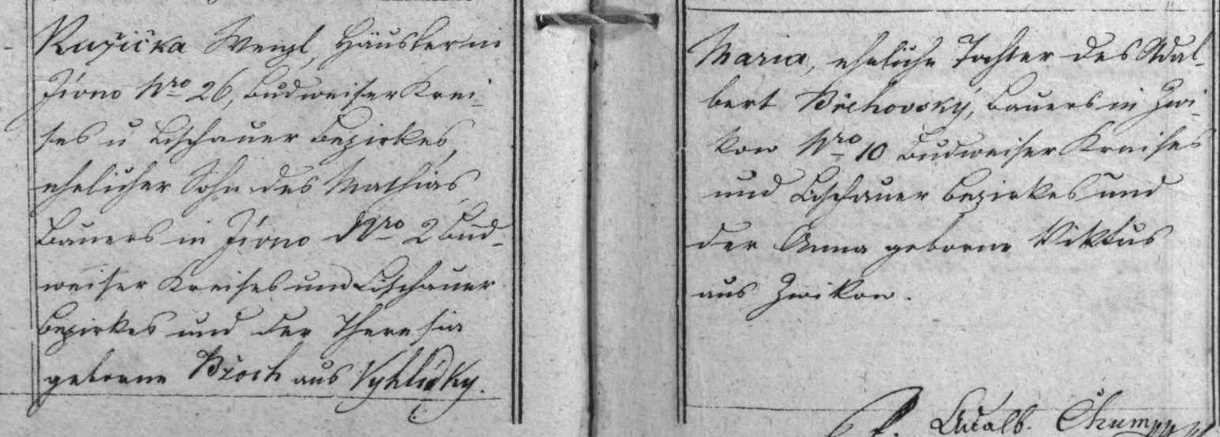 Ružička Wenzl, Häusler in
Jivno Nro 26, Budweiser Krei-
ses u Lischauer Bezirkes,
ehelicher Sohn des Mathias
Bauers in Jivno Nro 2 Bud-
weiser Kreises und Lischauer
Bezirkes und der Theresia
geborne Broch aus Vyhlidky.
Maria, eheliche Tochter des Adal-
bert Břehovský, Bauers in Zwi-
kow Nro 10 Budweiser Kreises
und Lischauer Bezirkes und
der Anna geborne Viktus
aus Zwikow.
Adalb.